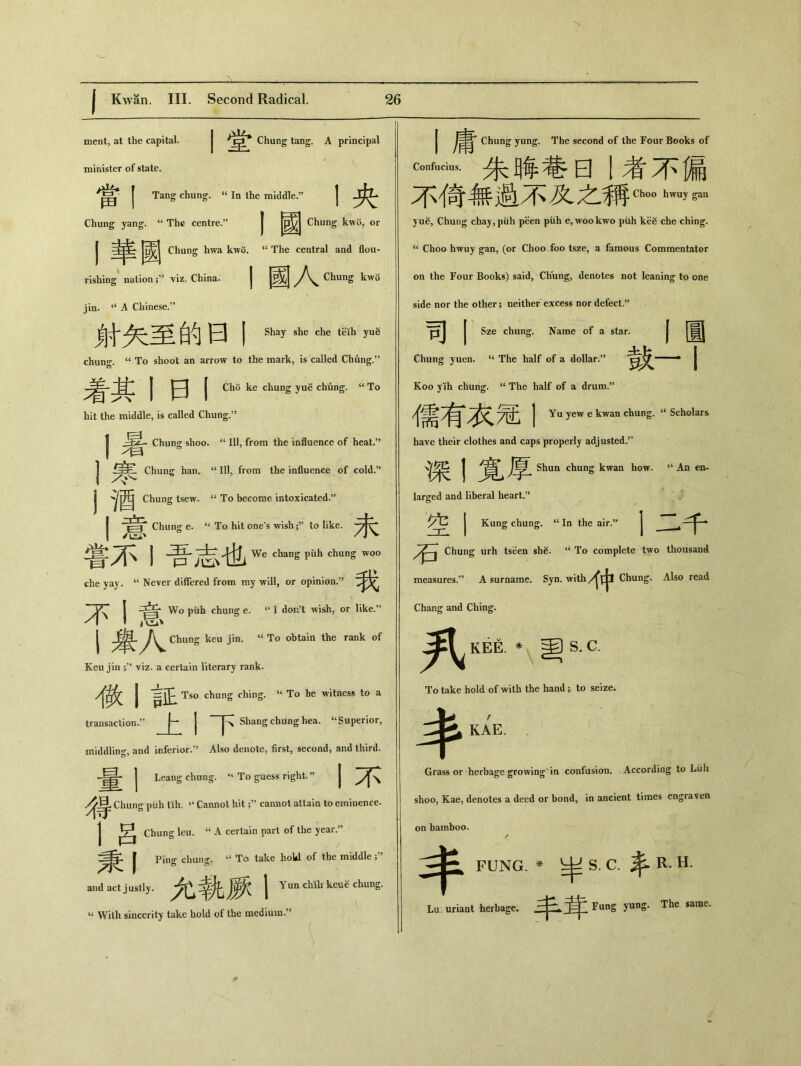 丨 Kwăn. III. Second Radical. 26
ment, at the capital. 丨堂 Chung tang. A principal
minister of state.
當丨 Tang chung. “ In the middle.” 丨央
Chung yang. “ The centre.” 丨國 Chung kwŏ, or
丨華國 Chung hwa kwŏ. “ The central and flou-
rishing nation ;” viz. China. 丨國人 Chung kwŏ
jin. “ A Chinese.”
射矢至的曰丨 Shay she che tëĭh yuĕ
chung. “ To shoot an arrow to the mark, is called Chúng.”
着其丨曰丨 Chŏ ke chung yuĕ chúng. “ To
hit the middle, is called Chung.”
丨暑 Chung shoo. “ Ill, from the influence of heat.”
丨寒 Chung han. “ Ill, from the influence of cold.”
丨酒 Chung tsew. “ To become intoxicated.”
丨意 Chung e. “ To hit one's wish ;” to like. 未
嘗不丨吾志也 We chang pŭh chung woo
che yay. “ Never differed from my will, or opinion.” 我
不丨意 Wo pŭh chung e. “ I don't wish, or like.”
丨舉人 Chung keu jin. “ To obtain the rank of
Keu jin ;” viz. a certain literary rank.
做丨証 Tso chung ching. “ To be witness to a
transaction.” 上丨下 Shang chung hea. “ Superior,
middling, and inferior.” Also denote, first, second, and third.
量丨 Leang chung. “ To guess right.” 丨不
得 Chung pŭh tĭh. “ Cannot hit ;” cannot attain to eminence.
丨呂 Chung leu. “ A certain part of the year.”
秉丨 Ping chung. “ To take hold of the middle ;”
and act justly. 允執厥丨 Yun chĭh keuĕ chung.
“ With sincerity take hold of the medium.”
丨庸 Chung yung. The second of the Four Books of
Confucius. 朱晦菴曰丨者不偏
不倚無過不及之稱 Choo hwuy gan
yuĕ, Chung chay, pŭh pëen pŭh e, woo kwo pŭh keĕ che ching.
“ Choo hwuy gan, (or Choo foo tsze, a famous Commentator
on the Four Books) said, Chung, denotes not leaning to one
side nor the other ; neither excess nor defect.”
司丨 Sze chung. Name of a star. 丨圓
Chung yuen. “ The half of a dollar.” 鼓一丨
Koo yĭh chung. “ The half of a drum.”
儒有衣冠丨 Yu yew e kwan chung. “ Scholars
have their clothes and caps properly adjusted.”
深丨寬厚 Shun chung kwan how. “ An en-
larged and liberal heart.”
空丨 Kung chung. “ In the air.” 丨二千
石 Chung urh tsëen shĕ. “ To complete two thousand
measures.” A surname. Syn. with 仲 Chung. Also read
Chang and Ching.
丮 KEĔ. * S. C.
To take hold of with the hand ; to seize.
丯 KÁE.
Grass or herbage growing in confusion. According to Lŭh
shoo, Kae, denotes a deed or bond, in ancient times engraven
on bamboo.
丰 FUNG. * S. C. R. H.
Lu uriant herbage. 丰茸 Fung yung. The same.